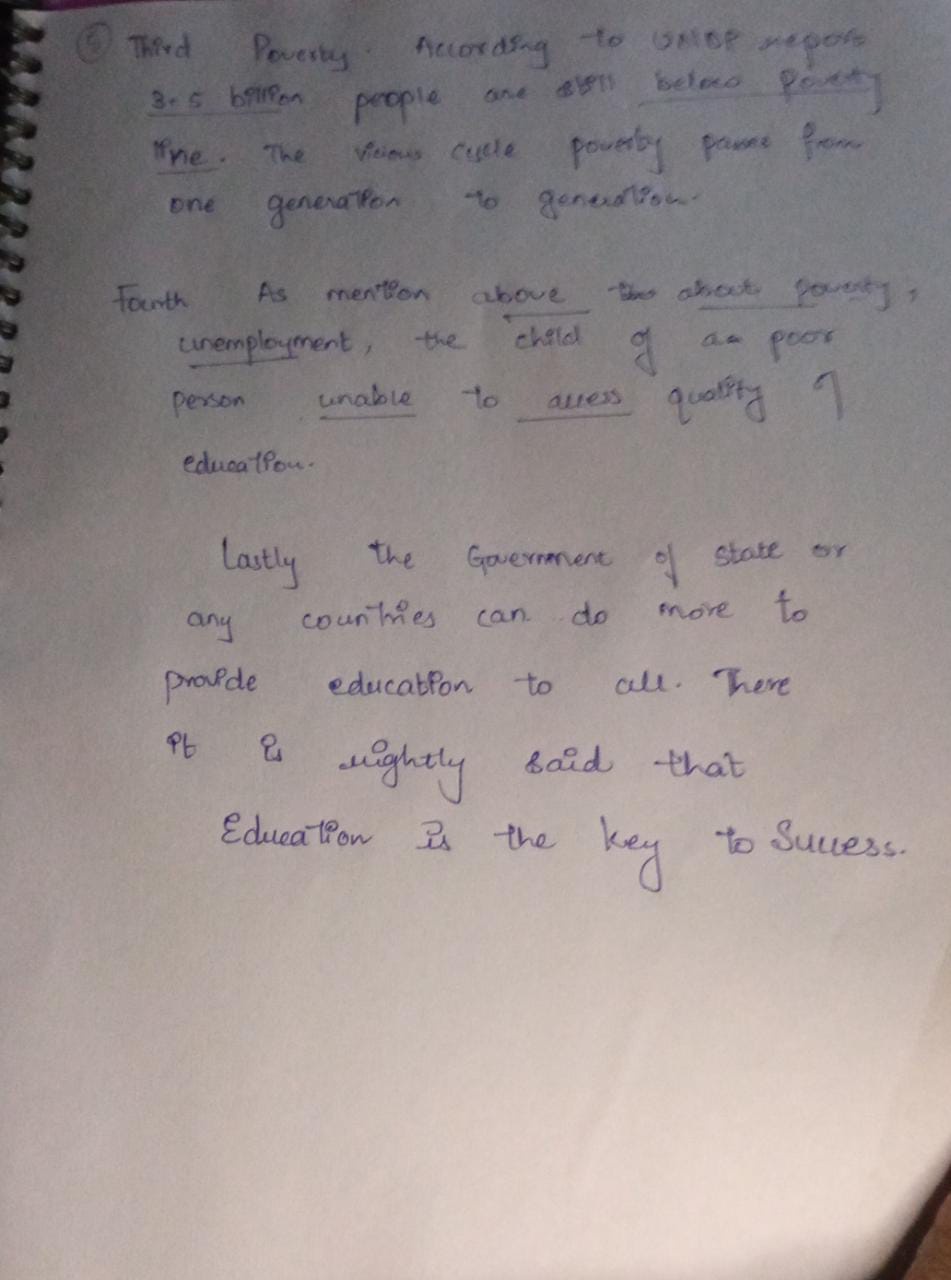 5 Third Poverty. According to UNDP report
3.5 billion people are still below Poverty
line. The vicious cycle poverty passes from
one generation to generation.
Fourth As mention above the about poverty,
unemployment, the child of a poor
person unable to access quality of
education.
Lastly the Government of state or
any countries can do more to
provide education to all. There
it is rightly said that
Education is the key to Success.